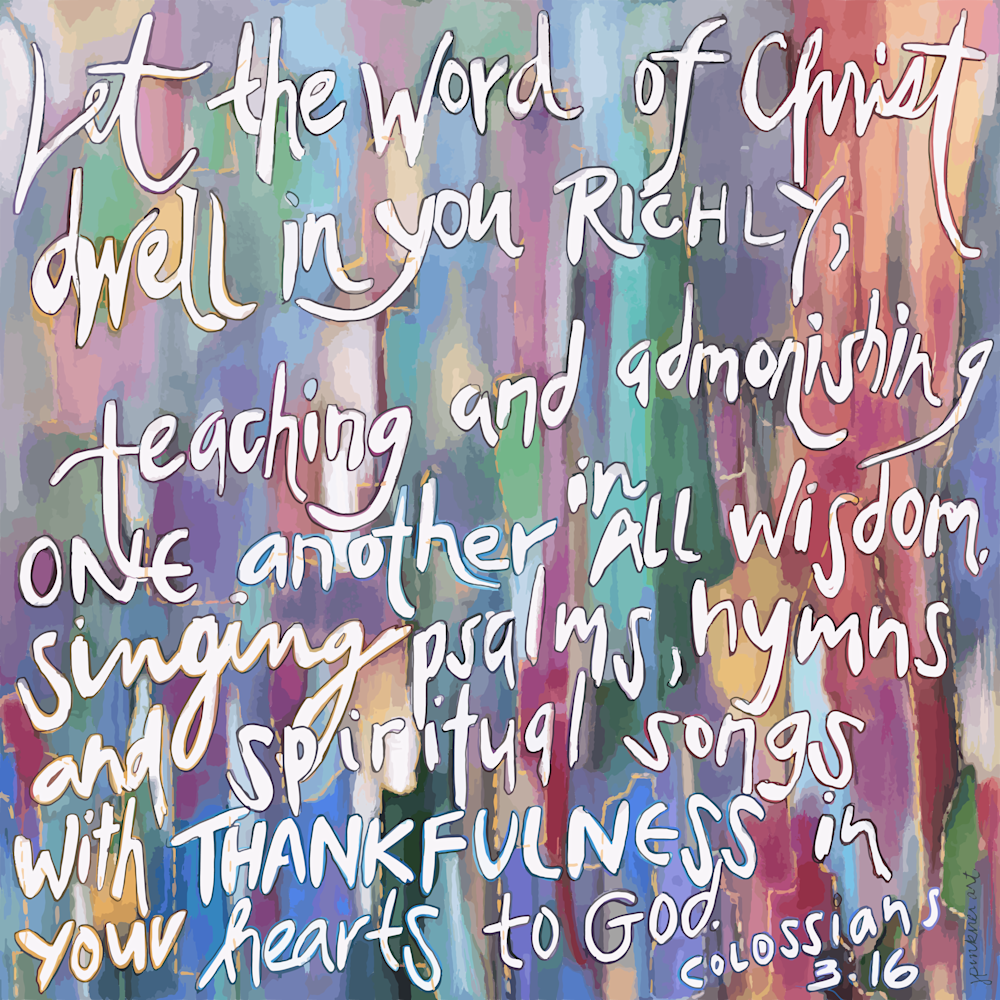 Let the Word of Christ
dwell in you RICHLY,
teaching and admonishing
ONE another in ALL wisdom.
singing psalms, hymns
and spiritual songs
with THANKFULNESS in
your hearts to God.
COLOSSIANS
3:16